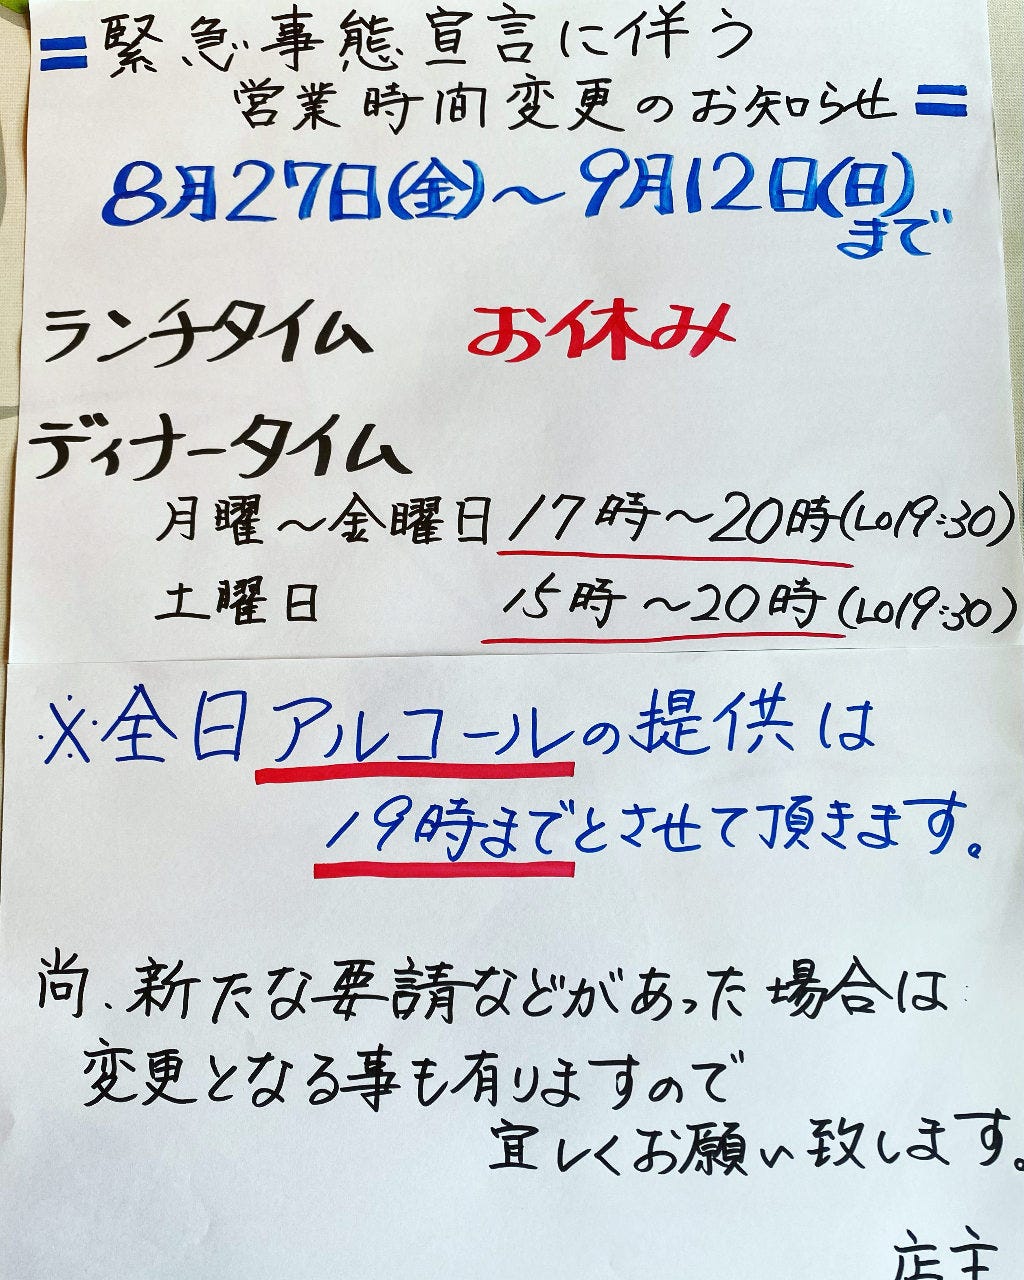 =緊急事態宣言に伴う
営業時間変更のお知らせ=
8月27日(金)〜9月12日(日)
まで
ランチタイム お休み
ディナータイム
月曜〜金曜日 17時〜20時(LO19:30)
土曜日 15時〜20時(LO19:30)
※全日アルコールの提供は
19時までとさせて頂きます。
尚、新たな要請などがあった場合は
変更となる事も有りますので
宜しくお願い致します。
店主